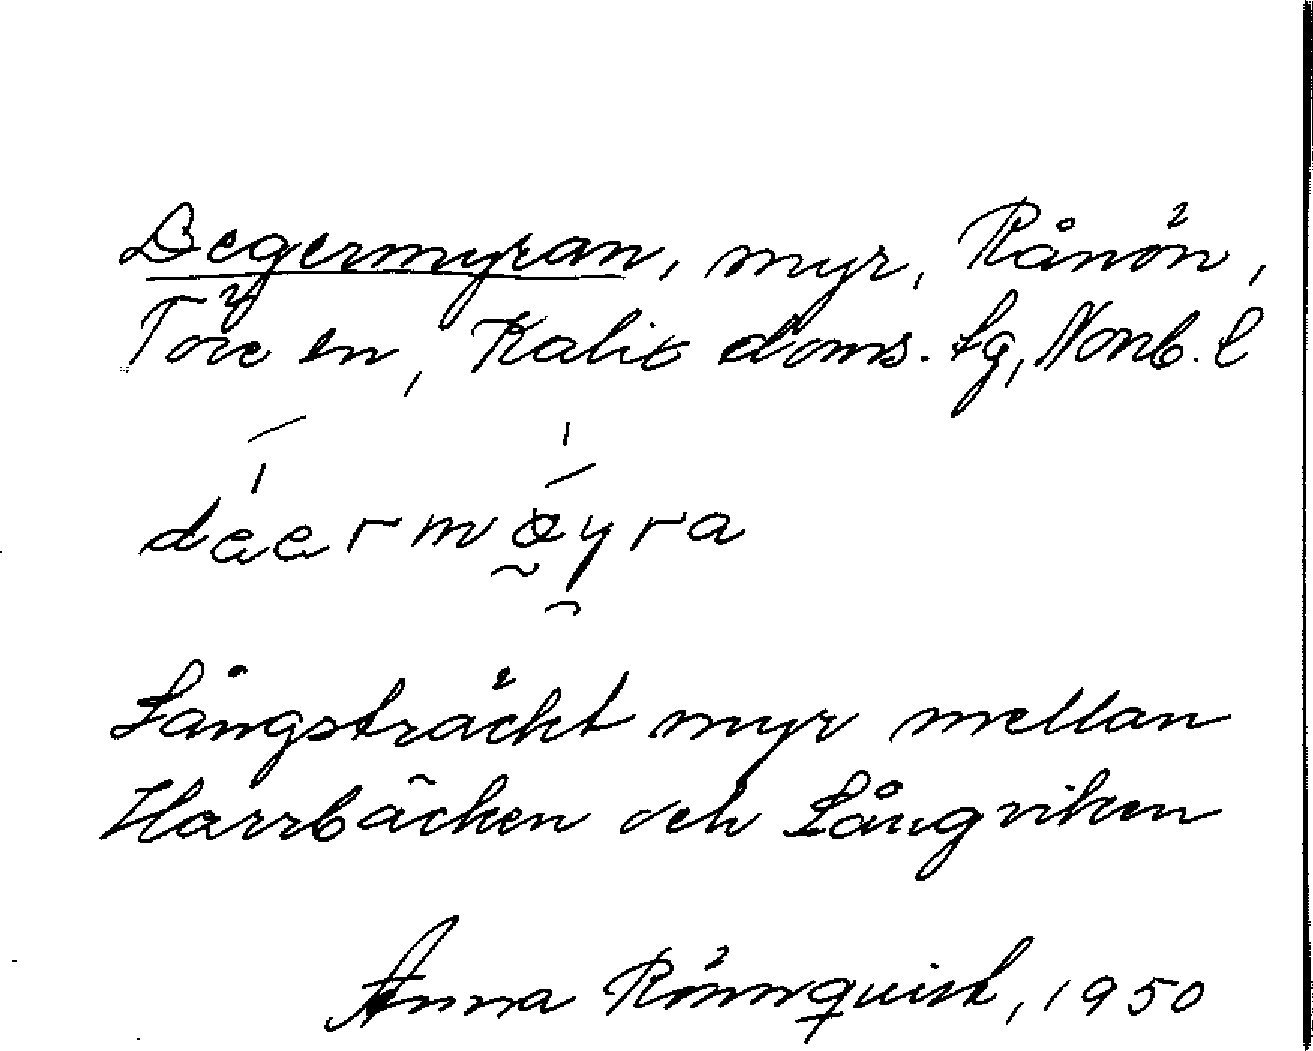 Degermyran, myr, Rånön,
Töre sn, Kalix doms. sg, Norrb. l
Långsträckt myr mellan
Harrbäcken och Långviken
Anna Rönnquist, 1950